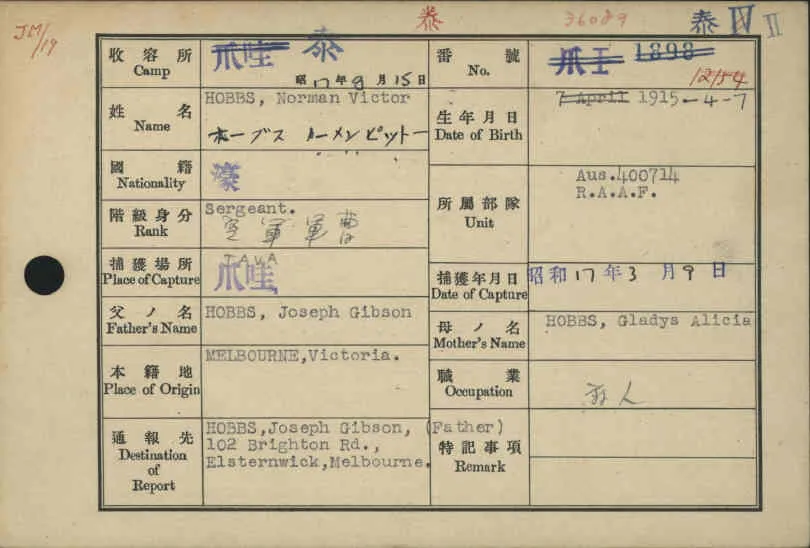 JM/19
泰
36089
泰 IV II
收容所
Camp
爪哇 泰
昭17年8月15日
番號
No.
爪I 1898
12154
姓名
Name
HOBBS, Norman Victor
ホーブス ノーメンビットー
生年月日
Date of Birth
7 April 1915-4-7
國籍
Nationality
濠
所屬部隊
Unit
Aus.400714
R.A.A.F.
階級身分
Rank
Sergeant.
空軍軍曹
捕獲場所
Place of Capture
JAVA
爪哇
捕獲年月日
Date of Capture
昭和17年3月9日
父ノ名
Father's Name
HOBBS, Joseph Gibson
母ノ名
Mother's Name
HOBBS, Gladys Alicia
本籍地
Place of Origin
MELBOURNE,Victoria.
職業
Occupation
通報先
Destination
of
Report
HOBBS,Joseph Gibson, (Father)
102 Brighton Rd.,
Elsternwick,Melbourne.
特記事項
Remark